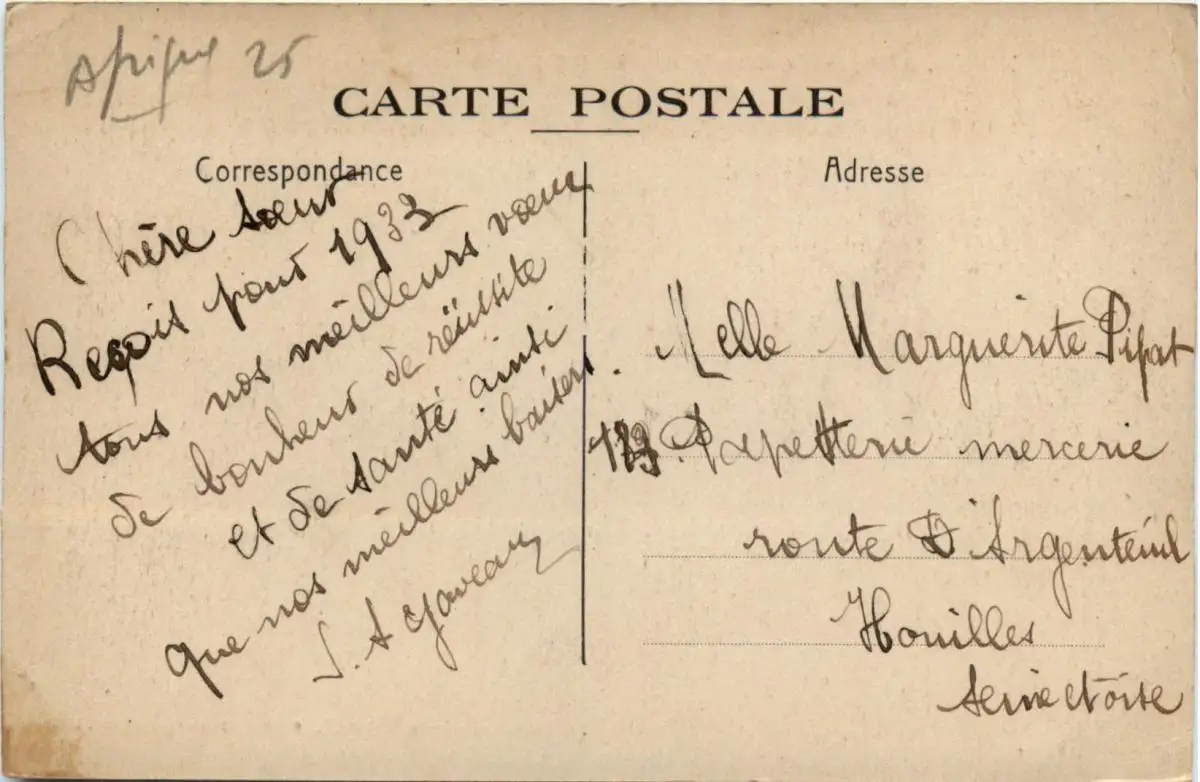 Afrique 25
CARTE POSTALE
Correspondance
Chère sœur
Reçois pour 1933
tous nos meilleurs vœux
de bonheur de réussite
et de santé ainsi
que nos meilleurs baisers.
J. A
Adresse
Melle Marguerite Pipat
Papetterie mercerie
route D'Argenteuil
Houilles
Seine et oise